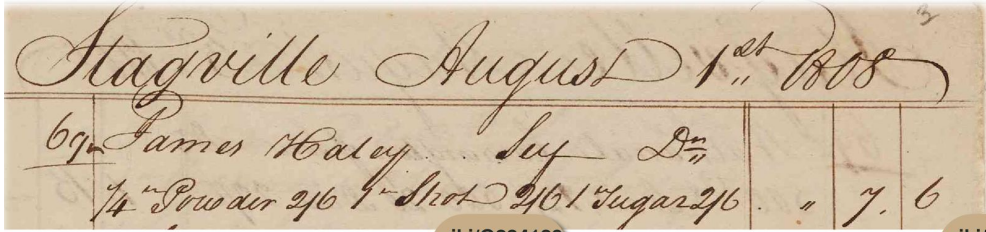 3
Stagville August 1st 1808
James Haley Dr
1/4 Powder 2/6 1 Shot 2/6 1 Sugar 2/6 " 7. 6